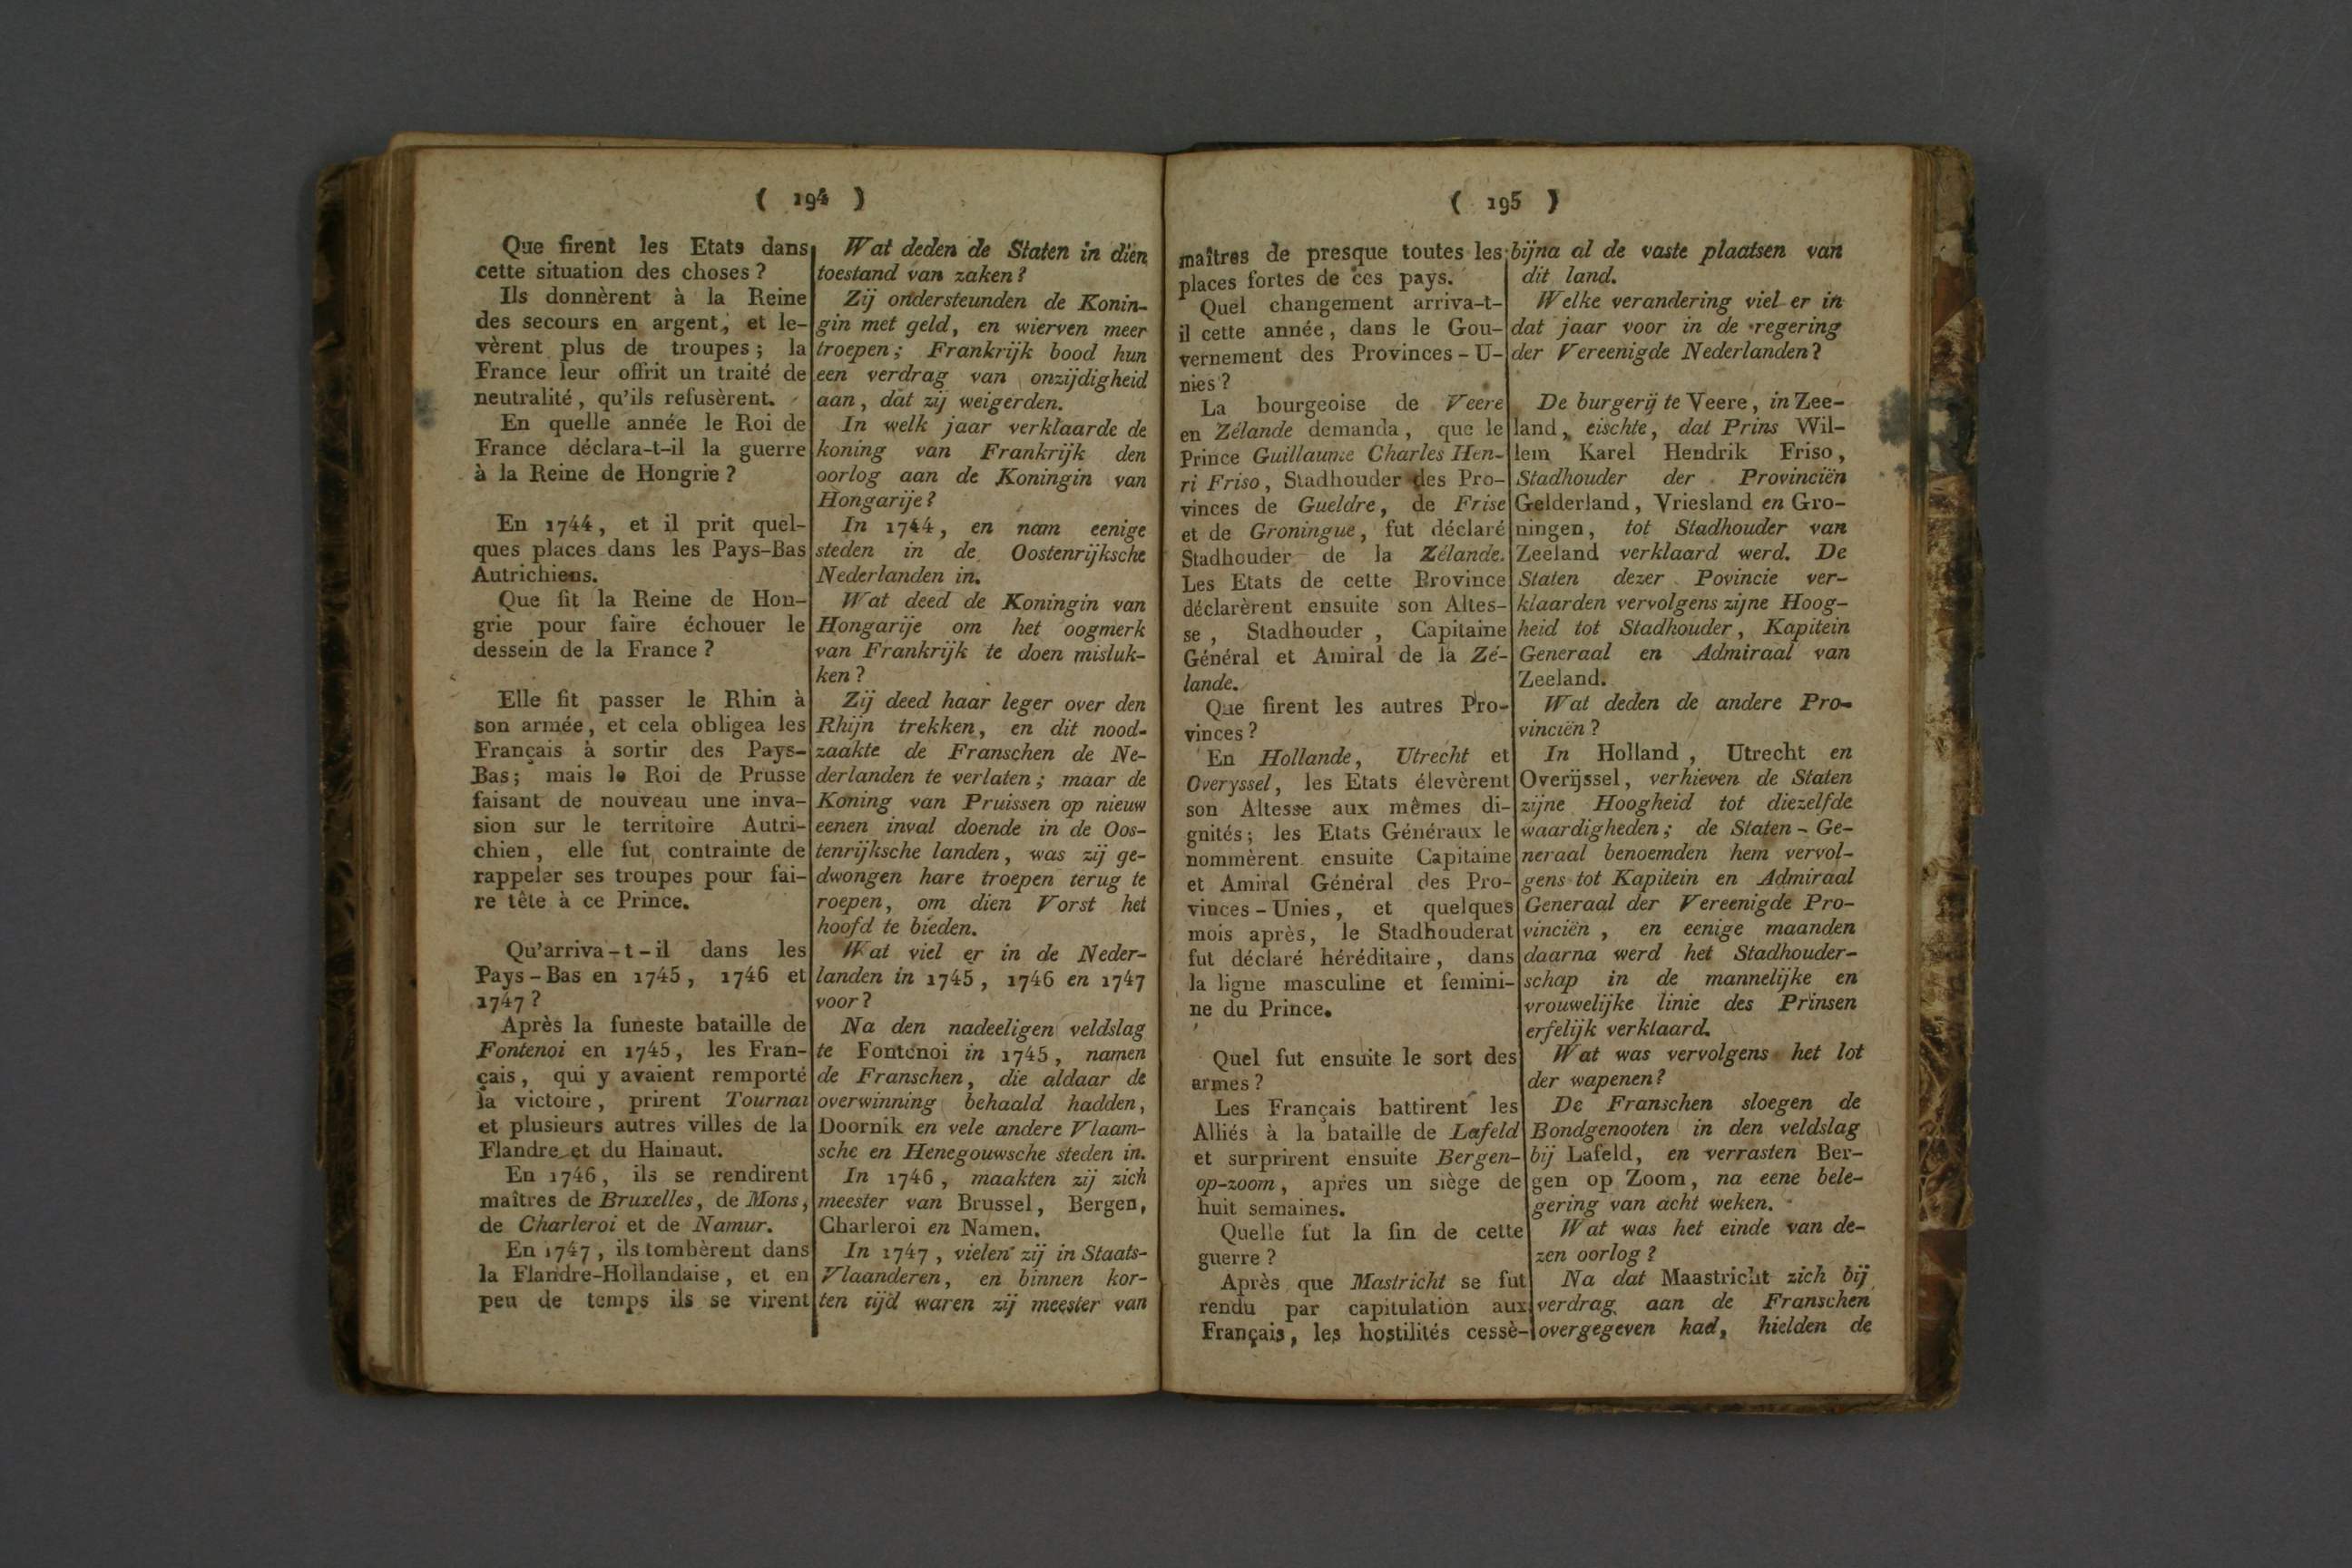 ( 194 )
Que firent les Etats dans
cette situation des choses ?
Ils donnèrent à la Reine
des secours en argent, et le-
vèrent plus de troupes ; la
France leur offrit un traité de
neutralité, qu'ils refusèrent.
En quelle année le Roi de
France déclara-t-il la guerre
à la Reine de Hongrie ?
En 1744, et il prit quel-
ques places dans les Pays-Bas
Autrichiens.
Que fit la Reine de Hon-
grie pour faire échouer le
dessein de la France ?
Elle fit passer le Rhin à
son armée, et cela obligea les
Français à sortir des Pays-
Bas ; mais le Roi de Prusse
faisant de nouveau une inva-
sion sur le territoire Autri-
chien, elle fut contrainte de
rappeler ses troupes pour fai-
re tête à ce Prince.
Qu'arriva-t-il dans les
Pays-Bas en 1745, 1746 et
1747 ?
Après la funeste bataille de
Fontenoi en 1745, les Fran-
çais, qui y avaient remporté
la victoire, prirent Tournai
et plusieurs autres villes de la
Flandre et du Hainaut.
En 1746, ils se rendirent
maîtres de Bruxelles, de Mons,
de Charleroi et de Namur.
En 1747, ils tombèrent dans
la Flandre-Hollandaise, et en
peu de temps ils se virent
Wat deden de Staten in dien
toestand van zaken ?
Zij ondersteunden de Konin-
gin met geld, en wierven meer
troepen ; Frankrijk bood hun
een verdrag van onzijdigheid
aan, dat zij weigerden.
In welk jaar verklaarde de
koning van Frankrijk den
oorlog aan de Koningin van
Hongarije ?
In 1744, en nam eenige
steden in de Oostenrijksche
Nederlanden in.
Wat deed de Koningin van
Hongarije om het oogmerk
van Frankrijk te doen misluk-
ken ?
Zij deed haar leger over den
Rhijn trekken, en dit nood-
zaakte de Franschen de Ne-
derlanden te verlaten ; maar de
Koning van Pruissen op nieuw
eenen inval doende in de Oos-
tenrijksche landen, was zij ge-
dwongen hare troepen terug te
roepen, om dien Vorst het
hoofd te bieden.
Wat viel er in de Neder-
landen in 1745, 1746 en 1747
voor ?
Na den nadeeligen veldslag
te Fontenoi in 1745, namen
de Franschen, die aldaar de
overwinning behaald hadden,
Doornik en vele andere Vlaam-
sche en Henegouwsche steden in.
In 1746, maakten zij zich
meester van Brussel, Bergen,
Charleroi en Namen.
In 1747, vielen zij in Staats-
Vlaanderen, en binnen kor-
ten tijd waren zij meester van
( 195 )
maîtres de presque toutes les
places fortes de ces pays.
Quel changement arriva-t-
il cette année, dans le Gou-
vernement des Provinces-U-
nies ?
La bourgeoise de Veere
en Zélande demanda, que le
Prince Guillaume Charles Hen-
ri Friso, Stadhouder des Pro-
vinces de Gueldre, de Frise
et de Groningue, fut déclaré
Stadhouder de la Zélande.
Les Etats de cette Province
déclarèrent ensuite son Altes-
se, Stadhouder, Capitaine
Général et Amiral de la Zé-
lande.
Que firent les autres Pro-
vinces ?
En Hollande, Utrecht et
Overyssel, les Etats élevèrent
son Altesse aux mêmes di-
gnités ; les Etats Généraux le
nommèrent ensuite Capitaine
et Amiral Général des Pro-
vinces-Unies, et quelques
mois après, le Stadhouderat
fut déclaré héréditaire, dans
la ligne masculine et femini-
ne du Prince.
Quel fut ensuite le sort des
armes ?
Les Français battirent les
Alliés à la bataille de Lafeld
et surprirent ensuite Bergen-
op-zoom, apres un siège de
huit semaines.
Quelle fut la fin de cette
guerre ?
Après que Mastricht se fut
rendu par capitulation aux
Français, les hostilités cessè-
bijna al de vaste plaatsen van
dit land.
Welke verandering viel er in
dat jaar voor in de regering
der Vereenigde Nederlanden ?
De burgerij te Veere, in Zee-
land, eischte, dat Prins Wil-
lem Karel Hendrik Friso,
Stadhouder der Provinciën
Gelderland, Vriesland en Gro-
ningen, tot Stadhouder van
Zeeland verklaard werd. De
Staten dezer Povincie ver-
klaarden vervolgens zijne Hoog-
heid tot Stadhouder, Kapitein
Generaal en Admiraal van
Zeeland.
Wat deden de andere Pro-
vinciën ?
In Holland, Utrecht en
Overijssel, verhieven de Staten
zijne Hoogheid tot diezelfde
waardigheden ; de Staten-Ge-
neraal benoemden hem vervol-
gens tot Kapitein en Admiraal
Generaal der Vereenigde Pro-
vinciën, en eenige maanden
daarna werd het Stadhouder-
schap in de mannelijke en
vrouwelijke linie des Prinsen
erfelijk verklaard.
Wat was vervolgens het lot
der wapenen ?
De Franschen sloegen de
Bondgenooten in den veldslag
bij Lafeld, en verrasten Ber-
gen op Zoom, na eene bele-
gering van acht weken.
Wat was het einde van de-
zen oorlog ?
Na dat Maastricht zich bij
verdrag aan de Franschen
overgegeven had, hielden de